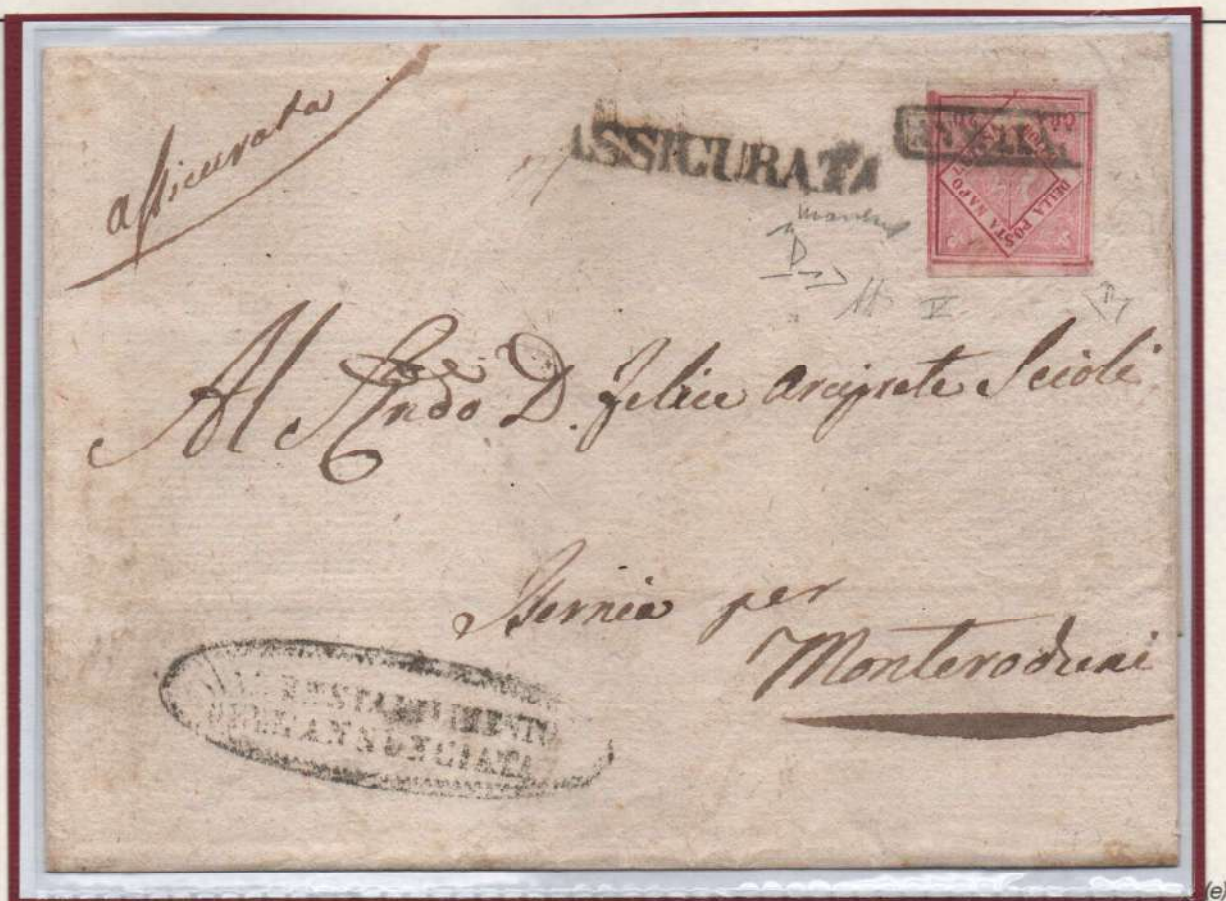 assicurata
ASSICURATA
ANNULLATO
DELLA POSTA NAPOL
Al Rndo D. Felice Arciprete Scioli
Isernia per
Monteroduni
REAL STABILIMENTO
DELL'ANNUNCIATA
(e)